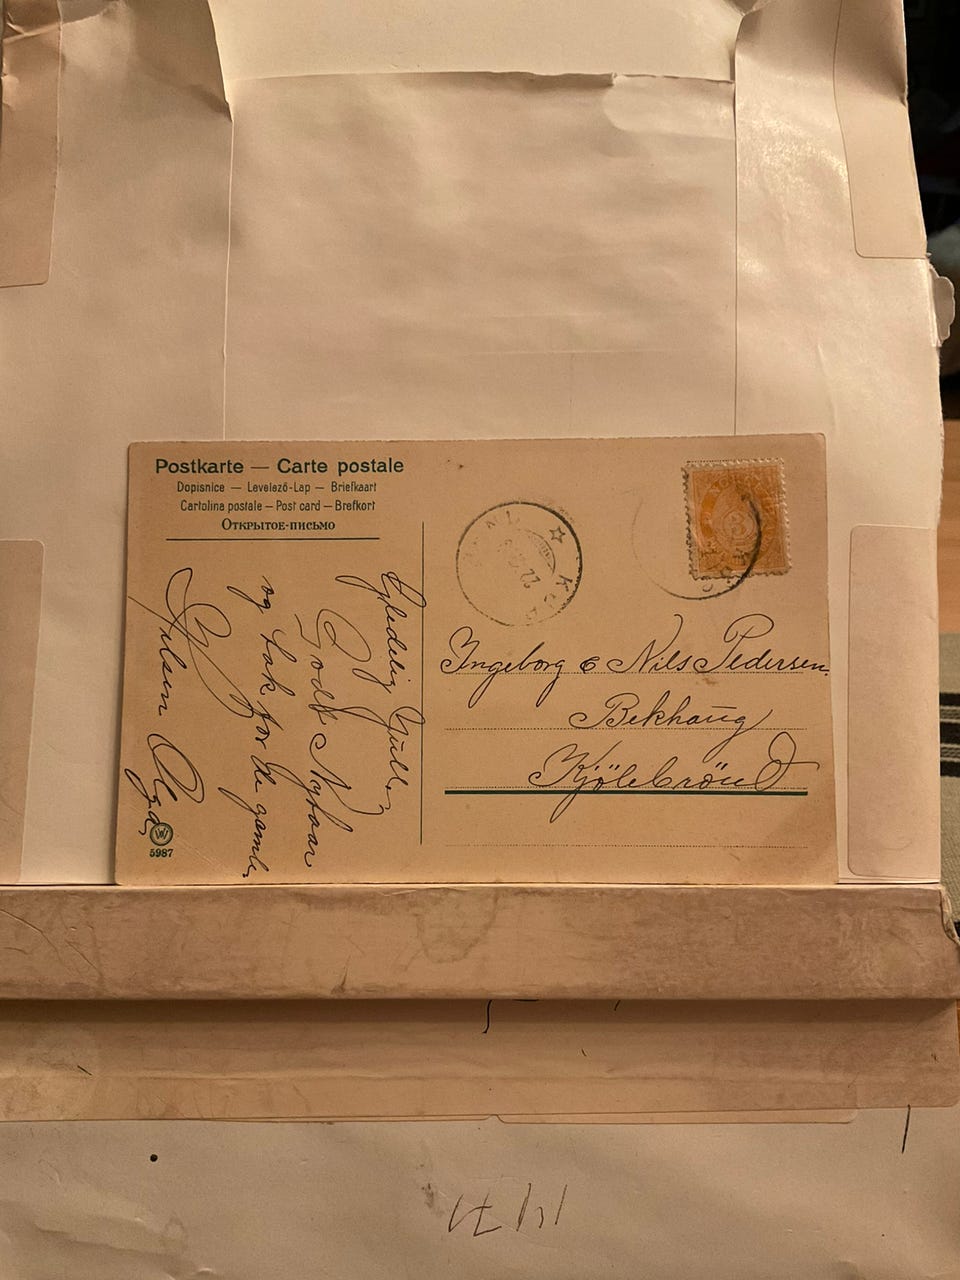 Postkarte — Carte postale
Dopisnice — Levelező-Lap — Briefkaart
Cartolina postale — Post card — Brefkort
Открытое-письмо
Glædelig Juul
Godt Nytaar
og tak for de gamle
Hilsen Olga
W
5987
3
Ingeborg & Nils Pedersen
Bekhaug
Kjölebrönd